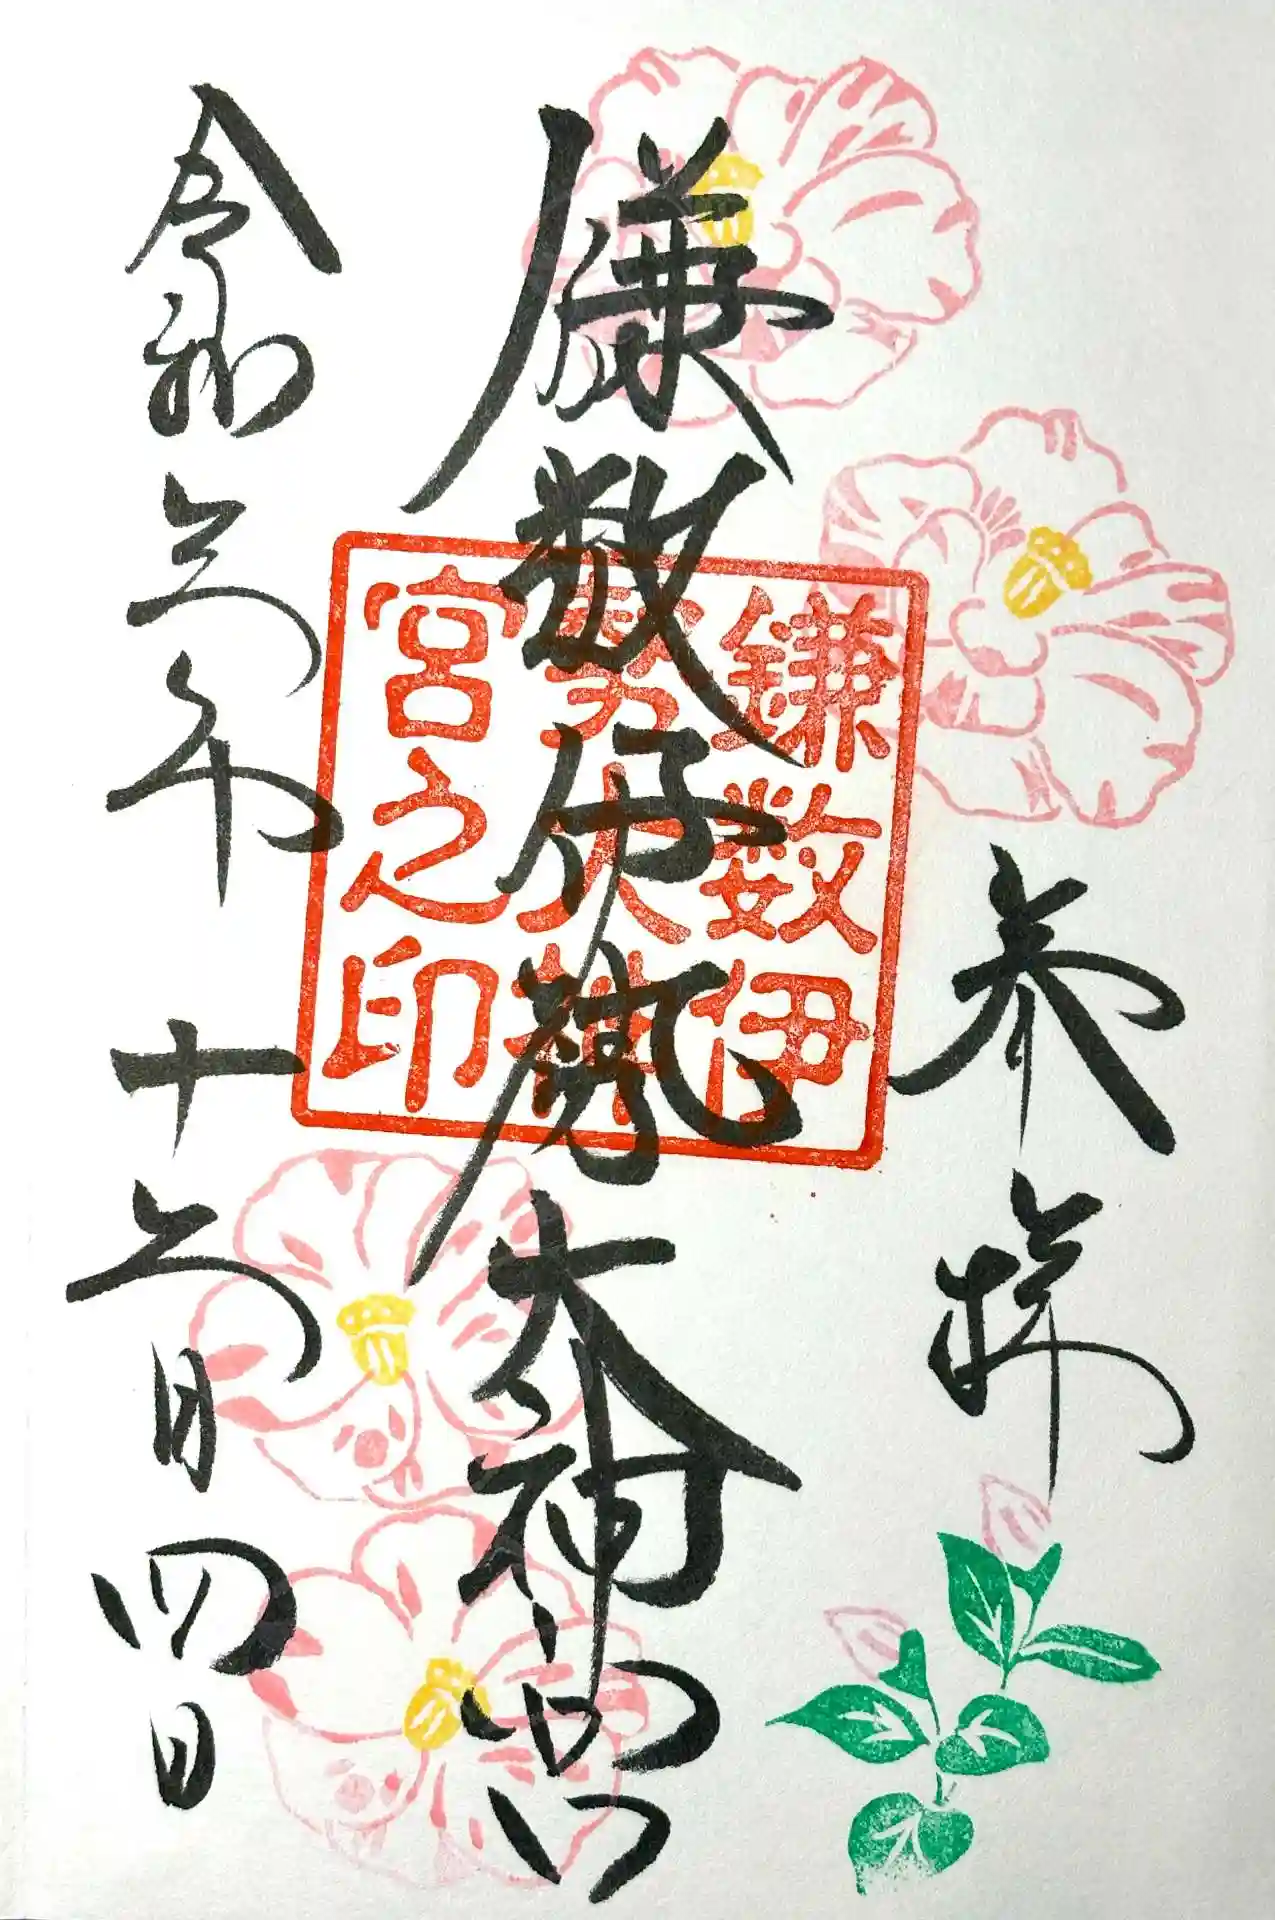 奉拝
鎌数伊勢大神宮
鎌数伊
勢大神
宮之印
令和三年十二月四日